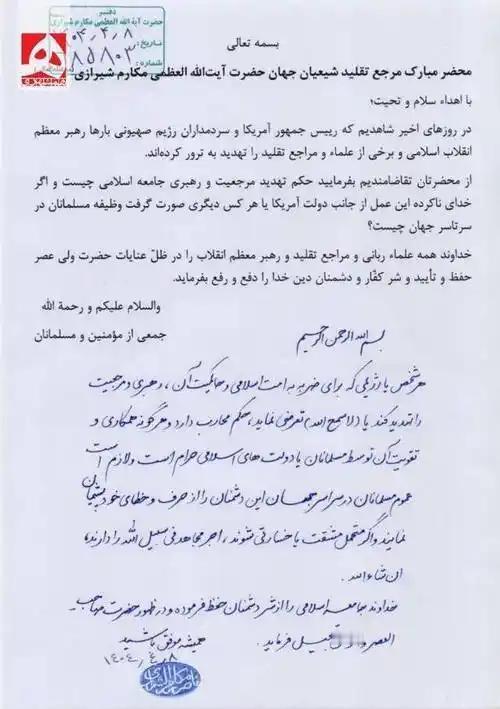 دفتر
حضرت آیة الله العظمی مکارم شیرازی
تاریخ: ۱۴۰۴/۴/۸
شماره: ۸۵۸۰۳
بسمه تعالی
محضر مبارک مرجع تقلید شیعیان جهان حضرت آیت‌الله العظمی مکارم شیرازی
با اهداء سلام و تحیت؛
در روزهای اخیر شاهدیم که رییس جمهور آمریکا و سردمداران رژیم صهیونی بارها رهبر معظم
انقلاب اسلامی و برخی از علماء و مراجع تقلید را تهدید به ترور کرده‌اند.
از محضرتان تقاضامندیم بفرمایید حکم تهدید مرجعیت و رهبری جامعه اسلامی چیست و اگر
خدای ناکرده این عمل از جانب دولت آمریکا یا هر کس دیگری صورت گرفت وظیفه مسلمانان در
سرتاسر جهان چیست؟
خداوند همه علماء ربانی و مراجع تقلید و رهبر معظم انقلاب را در ظلّ عنایات حضرت ولی عصر
حفظ و تأیید و شر کفّار و دشمنان دین خدا را دفع و رفع بفرماید.
والسلام علیکم و رحمة الله
جمعی از مؤمنین و مسلمانان
بسم الله الرحمن الرحیم
هر شخص یا رژیمی که برای ضربه به امت اسلامی و حاکمیت آن، رهبری و مرجعیت
را تهدید کند یا (لا سمح الله) تعرضی نماید، حکم محارب دارد و هرگونه همکاری و
تقویت آن توسط مسلمانان یا دولت های اسلامی حرام است و لازم است
عموم مسلمانان در سراسر جهان این دشمنان را از حرف و خطای خود پشیمان
نمایند و اگر متحمل مشقت یا خسارتی شوند، اجر مجاهد فی سبیل الله را دارند،
ان شاء الله.
خداوند جامعه اسلامی را از شر دشمنان حفظ فرموده و در ظهور حضرت صاحب
العصر تعجیل فرماید.
همیشه موفق باشید
۱۴۰۴/۴/۸